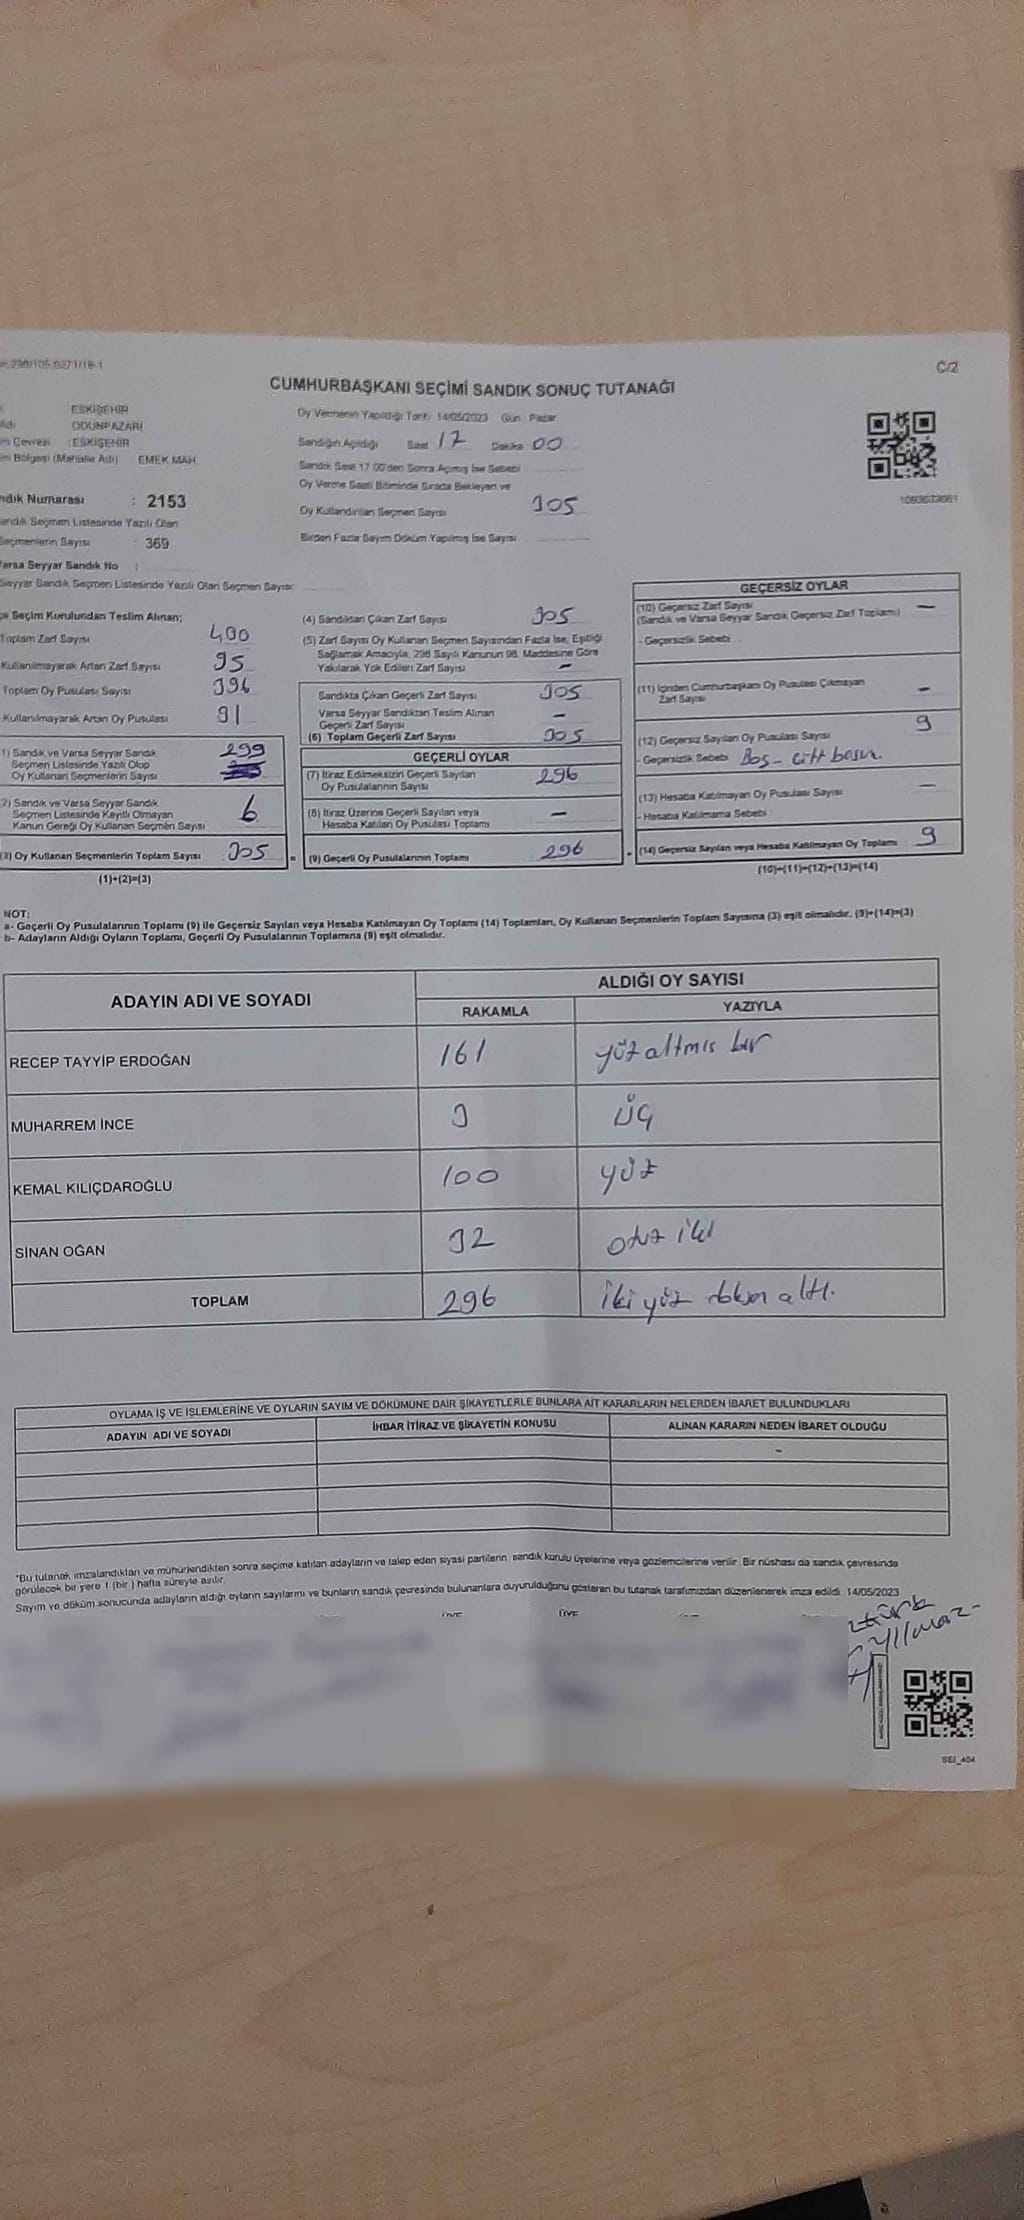 C/2
CUMHURBAŞKANI SEÇİMİ SANDIK SONUÇ TUTANAĞI
ESKİŞEHİR
ODUNPAZARI
ESKİŞEHİR
Bölgesi (Mahalle Adı) EMEK MAH.
Sandık Numarası : 2153
Sandık Seçmen Listesinde Yazılı Olan
Seçmenlerin Sayısı 369
Varsa Seyyar Sandık No :
Seyyar Sandık Seçmen Listesinde Yazılı Olan Seçmen Sayısı:
Oy Vermenin Yapıldığı Tarih: 14/05/2023 Gün: Pazar
Sandığın Açıldığı Saat 17 Dakika 00
Sandık Saat 17.00'den Sonra Açılmış İse Sebebi
Oy Verme Saati Bitiminde Sırada Bekleyen ve
Oy Kullandırılan Seçmen Sayısı 305
Birden Fazla Sayım Döküm Yapılmış İse Sayısı
1093633061
Seçim Kurulundan Teslim Alınan;
Toplam Zarf Sayısı 400
Kullanılmayarak Artan Zarf Sayısı 95
Toplam Oy Pusulası Sayısı 396
Kullanılmayarak Artan Oy Pusulası 91
1) Sandık ve Varsa Seyyar Sandık
Seçmen Listesinde Yazılı Olup
Oy Kullanan Seçmenlerin Sayısı 299
2) Sandık ve Varsa Seyyar Sandık
Seçmen Listesinde Kayıtlı Olmayan
Kanun Gereği Oy Kullanan Seçmen Sayısı 6
(3) Oy Kullanan Seçmenlerin Toplam Sayısı 305
(1)+(2)=(3)
(4) Sandıktan Çıkan Zarf Sayısı 305
(5) Zarf Sayısı Oy Kullanan Seçmen Sayısından Fazla İse, Eşitliği
Sağlamak Amacıyla, 298 Sayılı Kanunun 98. Maddesine Göre
Yakılarak Yok Edilen Zarf Sayısı –
Sandıkta Çıkan Geçerli Zarf Sayısı 305
Varsa Seyyar Sandıktan Teslim Alınan
Geçerli Zarf Sayısı –
(6) Toplam Geçerli Zarf Sayısı 305
GEÇERLİ OYLAR
(7) İtiraz Edilmeksizin Geçerli Sayılan
Oy Pusulalarının Sayısı 296
(8) İtiraz Üzerine Geçerli Sayılan veya
Hesaba Katılan Oy Pusulası Toplamı –
(9) Geçerli Oy Pusulalarının Toplamı 296
GEÇERSİZ OYLAR
(10) Geçersiz Zarf Sayısı
(Sandık ve Varsa Seyyar Sandık Geçersiz Zarf Toplamı) –
- Geçersizlik Sebebi
(11) İçinden Cumhurbaşkanı Oy Pusulası Çıkmayan
Zarf Sayısı –
(12) Geçersiz Sayılan Oy Pusulası Sayısı 9
- Geçersizlik Sebebi Boş - çift basım.
(13) Hesaba Katılmayan Oy Pusulası Sayısı –
- Hesaba Katılmama Sebebi
(14) Geçersiz Sayılan veya Hesaba Katılmayan Oy Toplamı 9
(10)+(11)+(12)+(13)=(14)
NOT:
a- Geçerli Oy Pusulalarının Toplamı (9) ile Geçersiz Sayılan veya Hesaba Katılmayan Oy Toplamı (14) Toplamları, Oy Kullanan Seçmenlerin Toplam Sayısına (3) eşit olmalıdır. (9)+(14)=(3)
b- Adayların Aldığı Oyların Toplamı, Geçerli Oy Pusulalarının Toplamına (9) eşit olmalıdır.
ADAYIN ADI VE SOYADI ALDIĞI OY SAYISI
RAKAMLA YAZIYLA
RECEP TAYYİP ERDOĞAN 161 yüz altmış bir
MUHARREM İNCE 3 üç
KEMAL KILIÇDAROĞLU 100 yüz
SİNAN OĞAN 32 otuz iki
TOPLAM 296 iki yüz doksan altı.
OYLAMA İŞ VE İŞLEMLERİNE VE OYLARIN SAYIM VE DÖKÜMÜNE DAİR ŞİKAYETLERLE BUNLARA AİT KARARLARIN NELERDEN İBARET BULUNDUKLARI
ADAYIN ADI VE SOYADI İHBAR İTİRAZ VE ŞİKAYETİN KONUSU ALINAN KARARIN NEDEN İBARET OLDUĞU
-
*Bu tutanak imzalandıktan ve mühürlendikten sonra seçime katılan adayların ve talep eden siyasi partilerin sandık kurulu üyelerine veya gözlemcilerine verilir. Bir nüshası da sandık çevresinde
görülecek bir yere 1 (bir) hafta süreyle asılır.
Sayım ve döküm sonucunda adayların aldığı oyların sayılarını ve bunların sandık çevresinde bulunanlara duyurulduğunu gösteren bu tutanak tarafımızdan düzenlenerek imza edildi. 14/05/2023
ÜYE ÜYE
Yılmaz
SEI_404